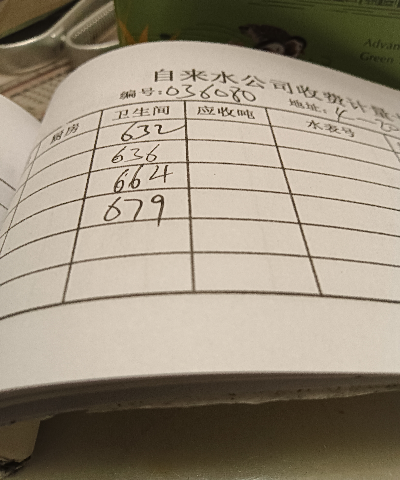 Advan
Green
自来水公司收费计量
编号:036080 地址:4
厨房 卫生间 应收吨 水表号
632
636
664
679